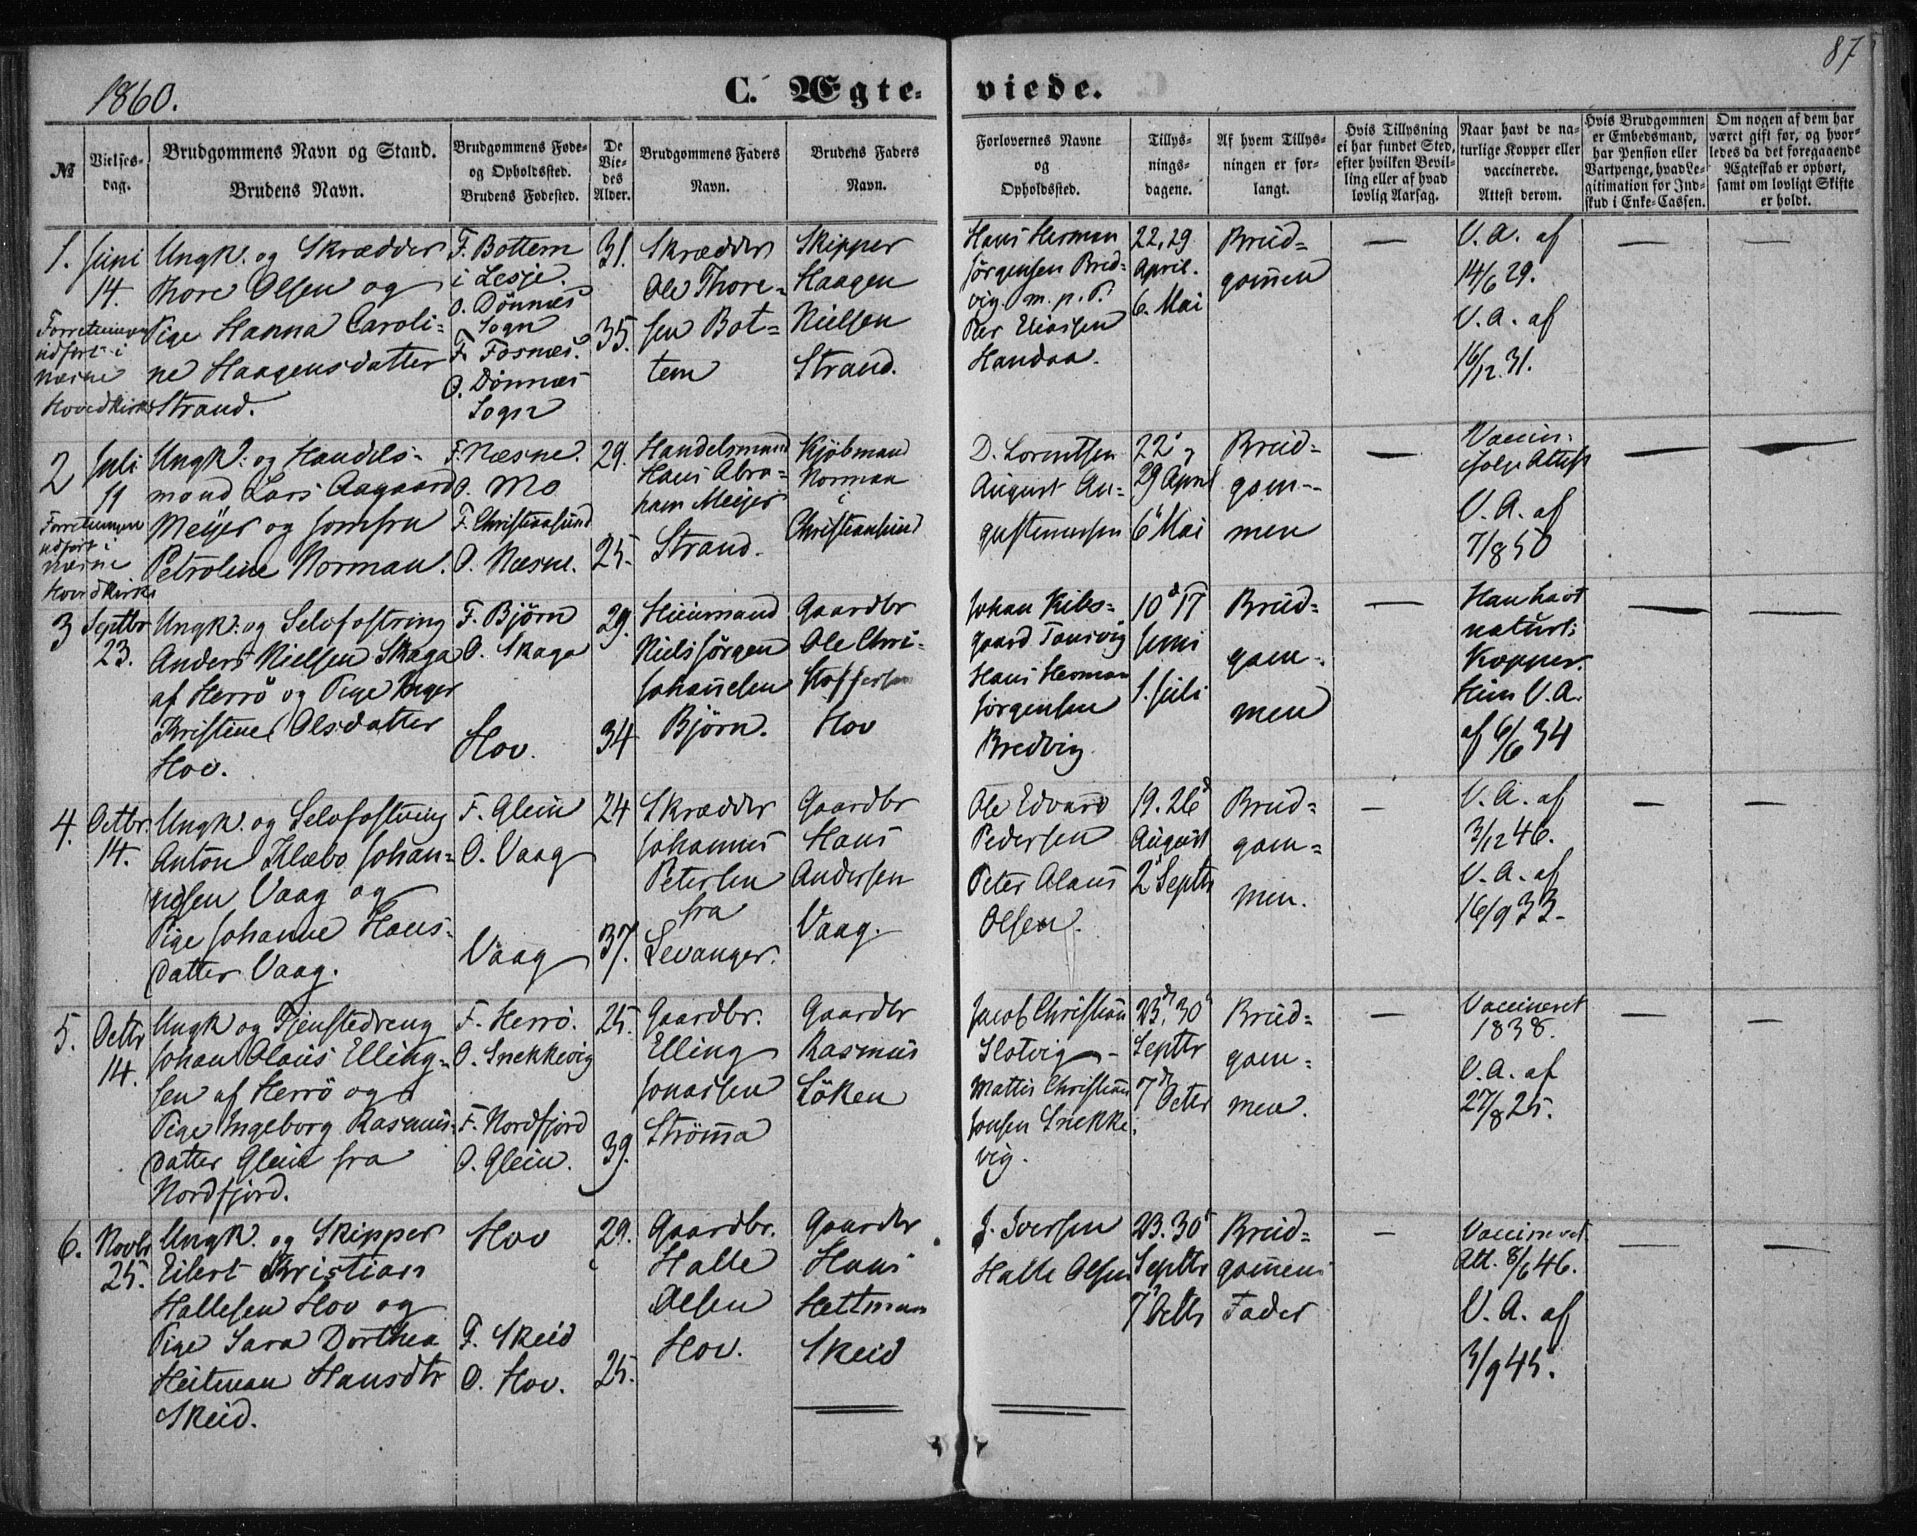 1860.
C. Ægte-
viede.
87
№
Vielses-
dag.
Brudgommens Navn og Stand.
Brudens Navn.
Brudgommens Føde-
og Opholdssted.
Brudens Fødested.
De
Vie-
des
Alder.
Brudgommens Faders
Navn.
Brudens Faders
Navn.
Forlovernes Navne
og
Opholdssted.
Tillys-
nings-
dagene.
Af hvem Tillys-
ningen er for-
langt.
Hvis Tillysning
ei har fundet Sted,
efter hvilken Bevil-
ling eller af hvad
lovlig Aarsag.
Naar havt de na-
turlige Kopper eller
vaccinerede.
Attest derom.
Hvis Brudgommen
er Embedsmand,
har Pension eller
Vartpenge, hvad Le-
gitimation for Ind-
skud i Enke-Cassen.
Om nogen af dem har
været gift før, og hvor-
ledes da det foregaaende
Ægteskab er ophørt,
samt om lovligt Skifte
er holdt.
1.
Juni
14.
Forretningen
udført i
Næsne
Hovedkirke
Ungk. og Skrædder
Thore Olsen og
Pige Hanna Caroli-
ne Haagensdatter
Strand.
F. Bottem
i Lesje.
O. Dönnæs
Sogn
F. Fosnæs.
O. Dönnæs
Sogn
31.
35.
Skrædder
Ole Thore-
sen Bot-
tem
Skipper
Haagen
Nielsen
Strand.
Hans Herman
Jörgensen Bred-
vig m. p. P.
Per Eliassen
Handaa.
22, 29
April.
6. Mai
Brud-
gommen
—
V. A. af
14/6 29.
V. A. af
16/12 31.
—
—
2
Juli
11
Forretningen
udført i
Næsne
Hovedkirke
Ungk. og Handels-
mand Lars Aagaard
Meyer og Jomfru
Petroline Norman.
F. Næsne.
O. Mo
F. Christiansund
O. Næsne.
29.
25.
Handelsmand
Hans Abra-
ham Meijer
Strand.
Kjöbmand
Norman
i
Christiansund
D. Lorentsen
August Au-
gustinussen
22 &
29 April
6 Mai
Brud-
gom-
men
—
Vaccin.
ifølge Attest
V. A. af
7/8 50
—
—
3
Septbr
23.
Ungk. og Selvfostring
Anders Nielsen Skaga
af Herrö og Pige Inger
Kristine Olsdatter
Hov.
F. Björn
O. Skaga
Hov.
29.
34
Huusmand
Niels Jörgen
Johannesen
Björn.
Gaardbr
Ole Chri-
stoffersen
Hov
Johan Kibs-
gaard
Hans Herman
Jörgensen
Bredvig
10 17
Juni
1. Juli
Brud-
gom-
men
—
Han havt
naturl:
Kopper.
Hun V. A.
af 6/6 34
—
—
4.
Octbr.
14.
Ungk. og Selvfostring
Anton Klæbo Johan-
nesen Vaag og
Pige Johanne Hans-
datter Vaag.
F. Glein
O. Vaag
Vaag
24
37.
Skrædder
Johannes
Petersen
fra
Levanger.
Gaardbr
Hans
Andersen
Vaag.
Ole Edvard
Pedersen
Peter Olaus
Olsen.
19. 26
August
2 Septbr
Brud-
gom-
men.
—
V. A. af
3/12 46.
V. A. af
16/9 33.
—
—
5.
Octbr
14.
Ungk og Tjenstedreng
Johan Olaus Elling-
sen af Herrö og
Pige Ingeborg Rasmus-
datter Glein fra
Nordfjord.
F. Herrö.
O. Snekkevig
F. Nordfjord
O. Glein.
25.
39.
Gaardbr.
Elling
Jonassen
Strömma
Gaardbr
Rasmus
Löken
Jacob Christian
Slotvig -
Mattis Christian
Jonsen Snekke-
vig.
23, 30
Septbr
7 Octbr
Brud-
gom-
men.
—
Vaccineret
1838.
V. A. af
27/8 25.
—
—
6.
Novbr
25.
Ungk. og Skipper
Eilert Kristian
Hallesen Hov og
Pige Sara Dorthea
Heitman Hansdtr
Skeid.
Hov
F. Skeid
O. Hov.
29.
25.
Gaardbr.
Halle
Olsen
Hov.
Gaardbr
Hans
Heitman
Skeid
J. Iversen
Halle Olsen
23. 30
Septbr
7 Octbr
Brud-
gommens
Fader
—
Vaccineret
Att. 8/6 46.
V. A. af
3/9 45.
—
—